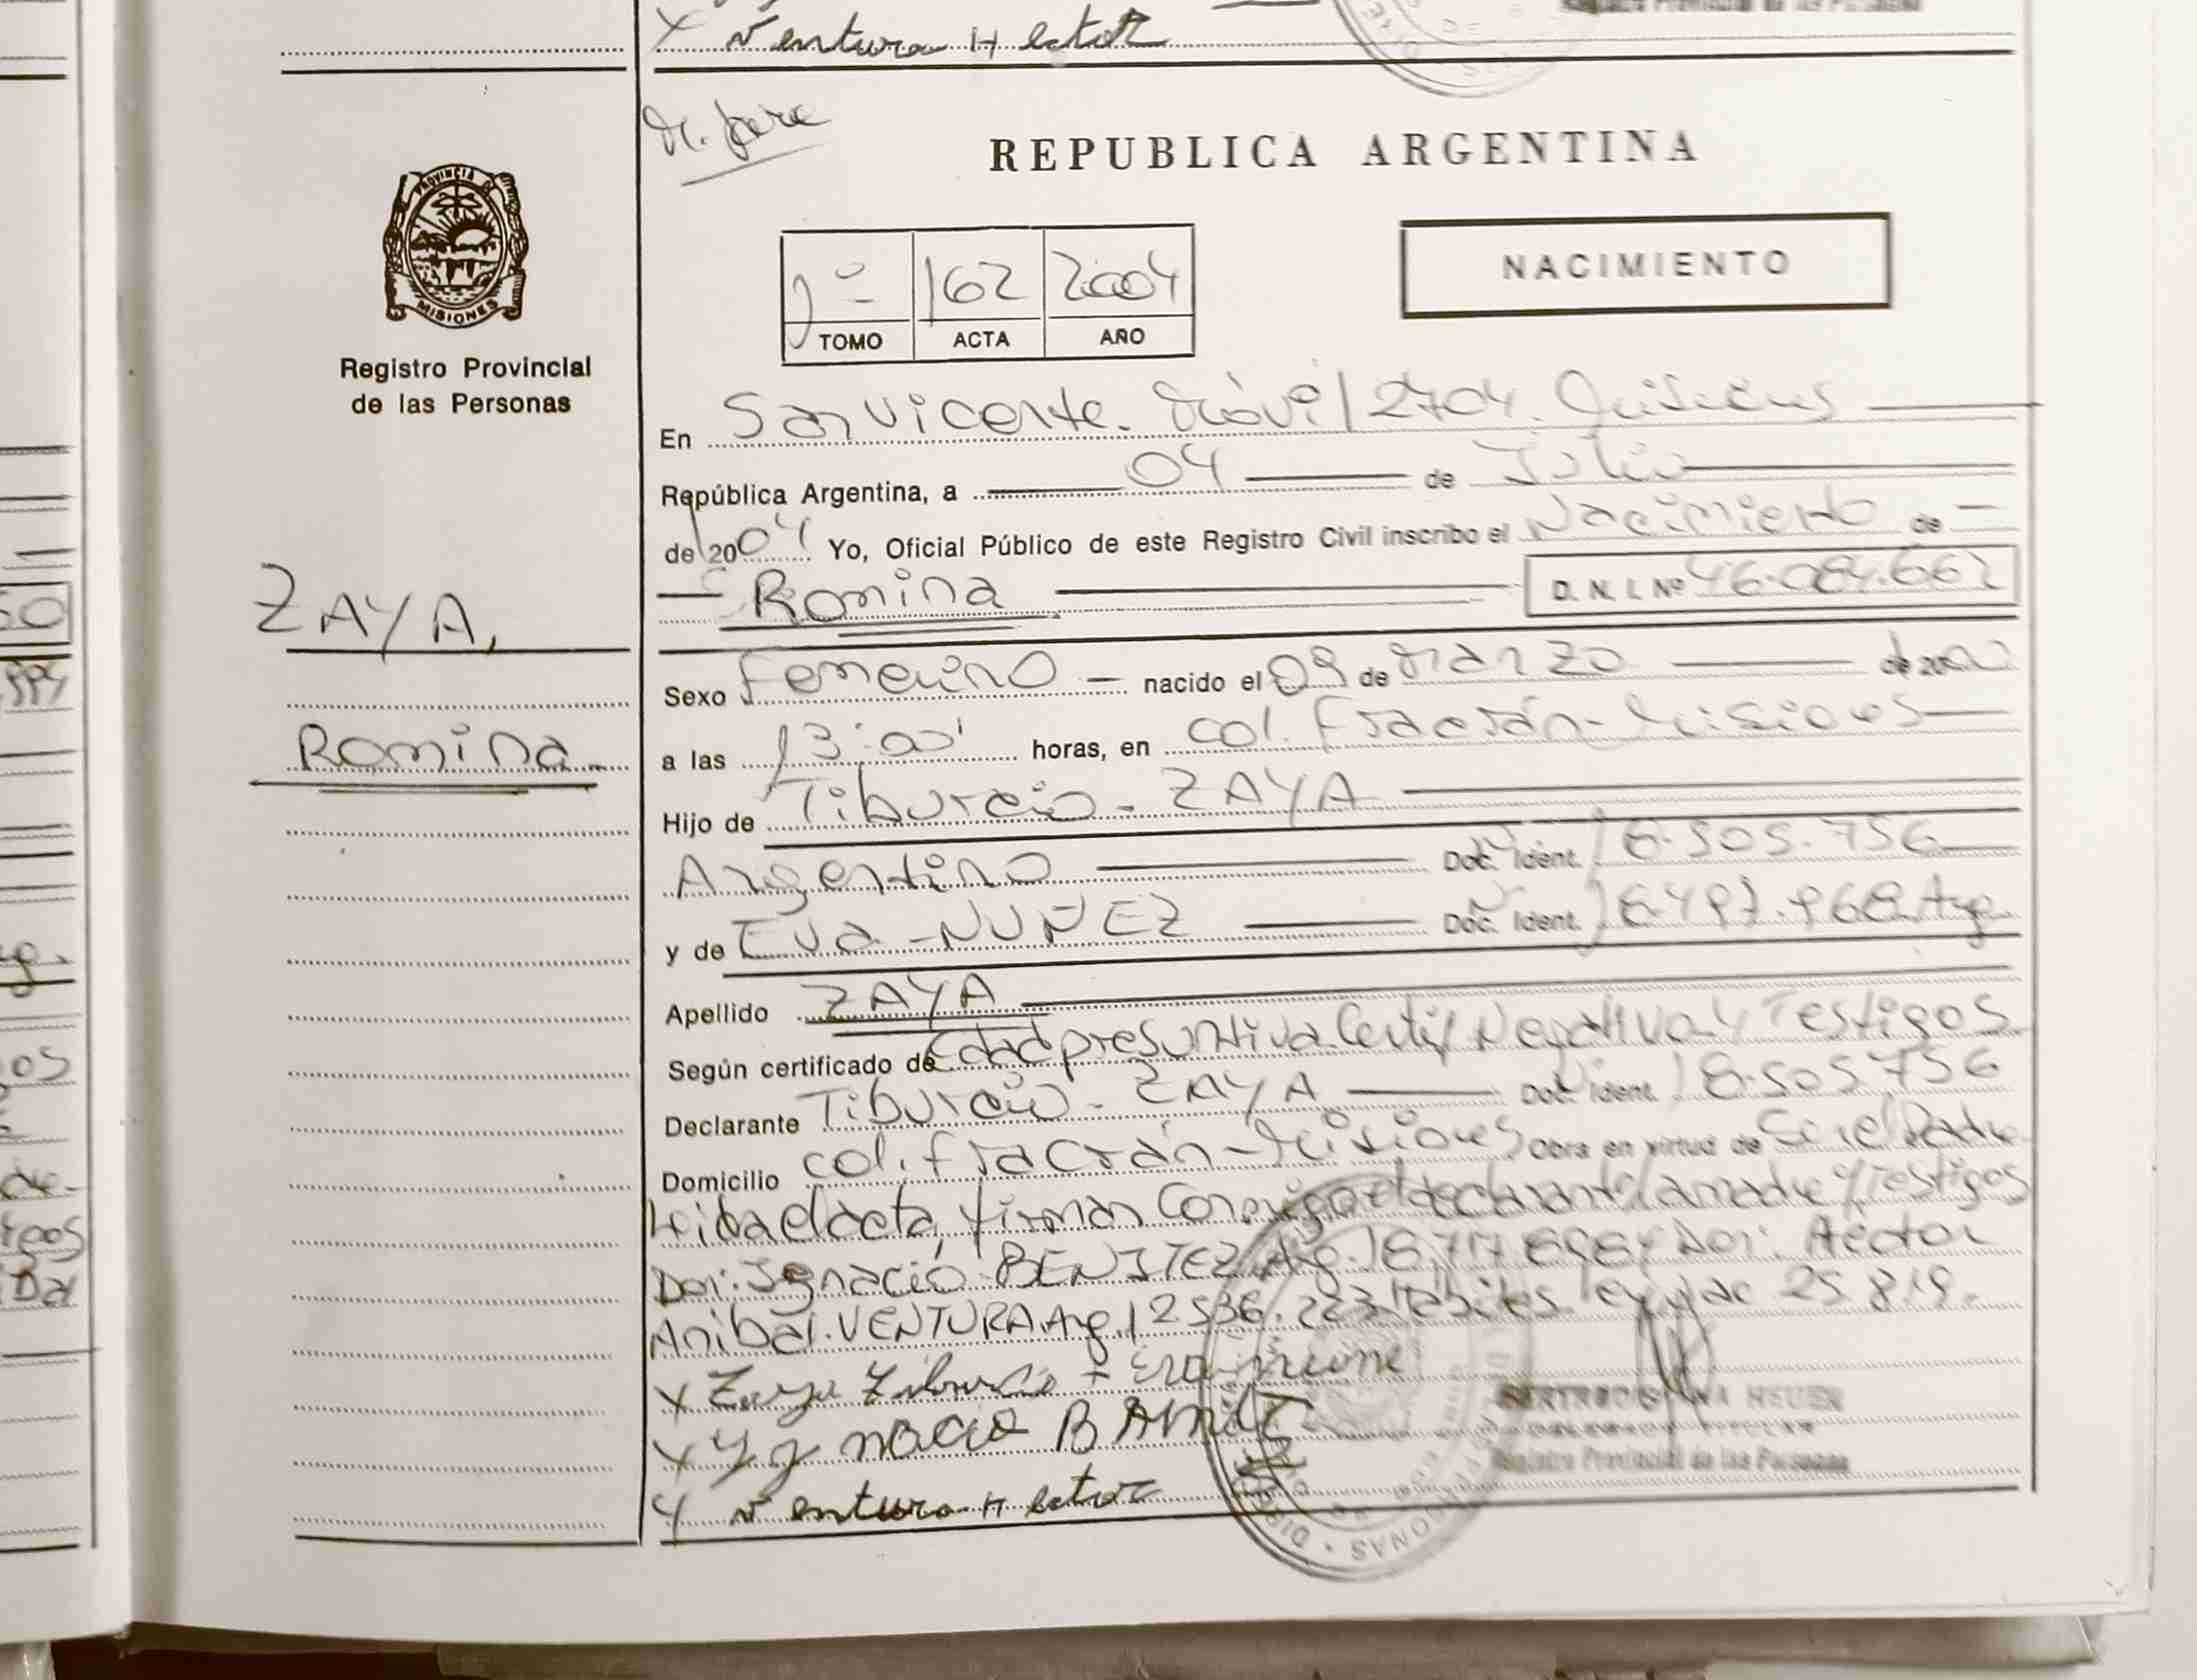 Ventura Hector
REPUBLICA ARGENTINA
PROVINCIA DE
MISIONES
Registro Provincial
de las Personas
1º 162 2004
TOMO ACTA AÑO
NACIMIENTO
En San Vicente. Móvil 2704. Misiones
República Argentina, a 04 de Julio
de 2004 Yo, Oficial Público de este Registro Civil inscribo el Nacimiento de
Romina D. N. I. Nº 46.084.662
ZAYA,
Romina
Sexo Femenino nacido el 09 de Marzo de 2000
a las 13:00 horas, en Col. Fracrán - Misiones
Hijo de Tiburcio - ZAYA
Argentino Doc. Ident. 18.505.756
y de Eva - NUÑEZ Doc. Ident. Arg.
Apellido ZAYA
Según certificado de Edad presuntiva Certif Negativa y Testigos
Declarante Tiburcio - ZAYA Doc. Ident. 18.505.756
Domicilio Col. Fracrán - Misiones Obra en virtud de Ser el Padre
Leida el acta, firman Conmigo el declarante la madre y Testigos
Don: Ignacio BENITEZ Arg. Don: Hector
Anibal. VENTURA. Arg. 12536.223 Habiles ley nac 25.819.
x Zaya Tiburcio + Eva nuñe
x Ygnacio
Ventura Hector
Registro Provincial de las Personas